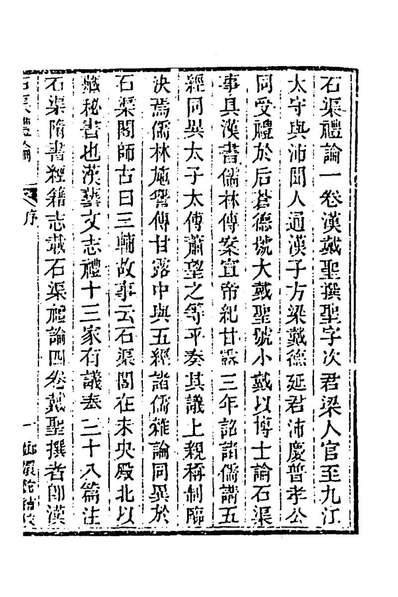 石渠禮論一卷漢戴聖撰聖字次君梁人官至九江
太守與沛聞人通漢子方梁戴德延君沛慶普孝公
同受禮於后蒼德號大戴聖號小戴以博士論石渠
事具漢書儒林傳案宣帝紀甘露三年詔諸儒講五
經同異太子太傅蕭望之等平奏其議上親稱制臨
決焉儒林施讐傳甘露中與五經諸儒雜論同異於
石渠閣師古曰三輔故事云石渠閣在未央殿北以
藏秘書也漢藝文志禮十三家有議奏三十八篇注
石渠隋書經籍志載石渠禮論四卷戴聖撰者卽漢
石渠禮論
序
一